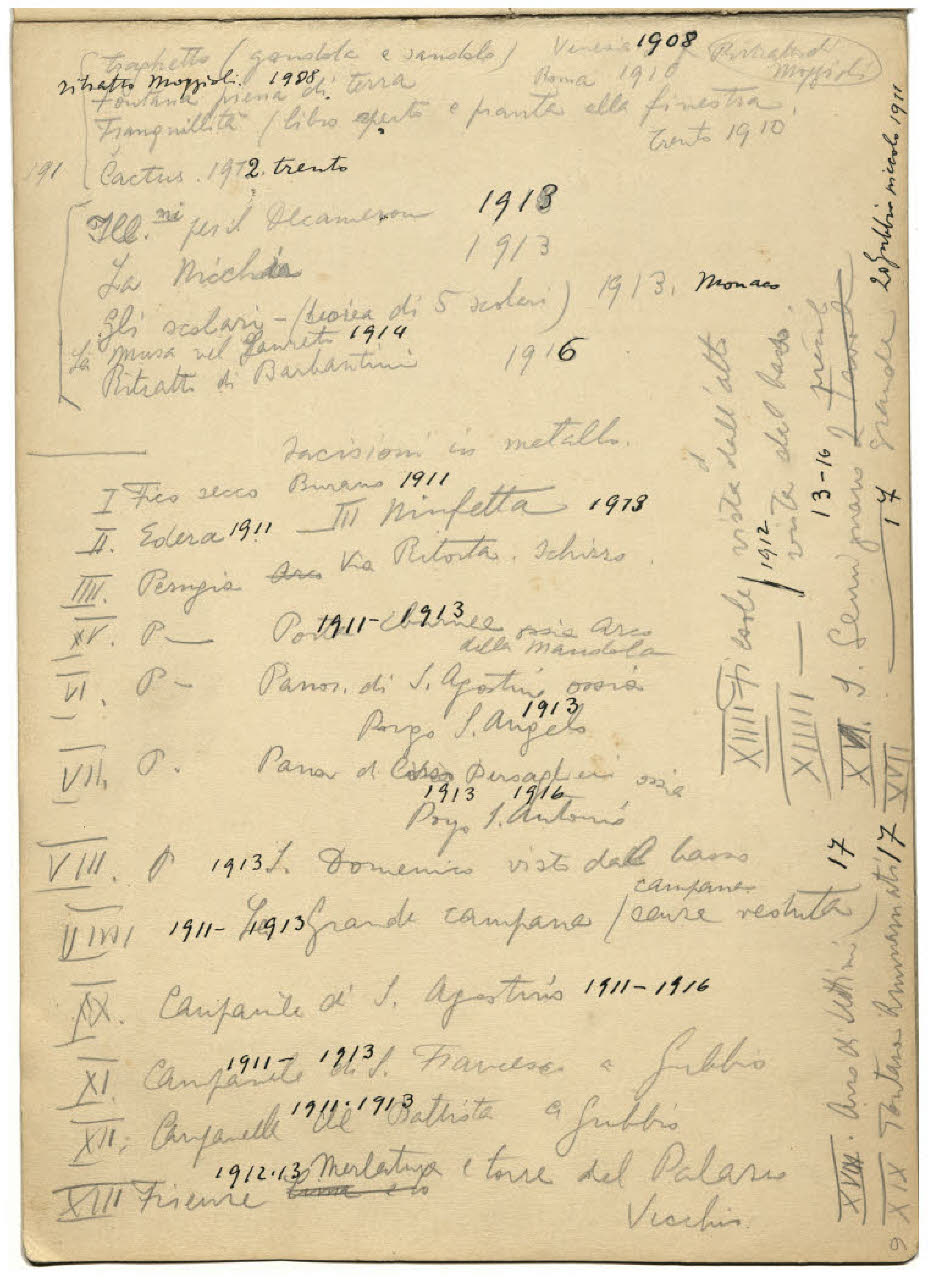 traghetto (gondola e sandolo) Venezia 1908 Ritratto di Moggioli
ritratto Moggioli. 1908.
Fontana piena di terra Roma 1910
Tranquillità (libro aperto e pianta alla finestra.
Trento 1910
191 Cactus. 1912. trento
Ill.ni per il Decameron 1913
La Nicchia 1913
Gli scolari - (teorea di 5 scolari) 1913. Monaco
La musa nel Laureto 1914
Ritratto di Barbantini 1916
Incisioni in metallo.
I Fico secco Burano 1911
II. Edera 1911 III Ninfetta 1913
IIII. Perugia Arco Via Ritorta. Schizzo.
XV. P— Porta Eburnea ossia Arco
1911-1913
della Mandola
VI. P— Panor. di S. Agostino ossia
Borgo S. Angelo 1913
VII. P. Panor di Corso Bersaglieri ossia
1913 1916
Borgo S. Antonio
VIII. P 1913 S. Domenico visto dal basso
VIIII 1911-1913 La Grande campana (senza veduta) 17
campane
XX. Campanile di S. Agostino 1911-1916
XI. Campanile di S. Francesco a Gubbio
1911- 1913
XII. Campanelle del Battista a Gubbio
1911-1913
XIII Firenze Merlatura e torre del Palazzo
1912.13
Vecchio.
XIIII Fiesole (vista dall'alto
1912
XIIIII — vista dal basso.
13-16
XVI. S. Gemignano 2 tavole
XVII — 14 Grande
20 Gubbio niccolo 1911
XVIII. Arco di
XIX Fontana Ammannati 17